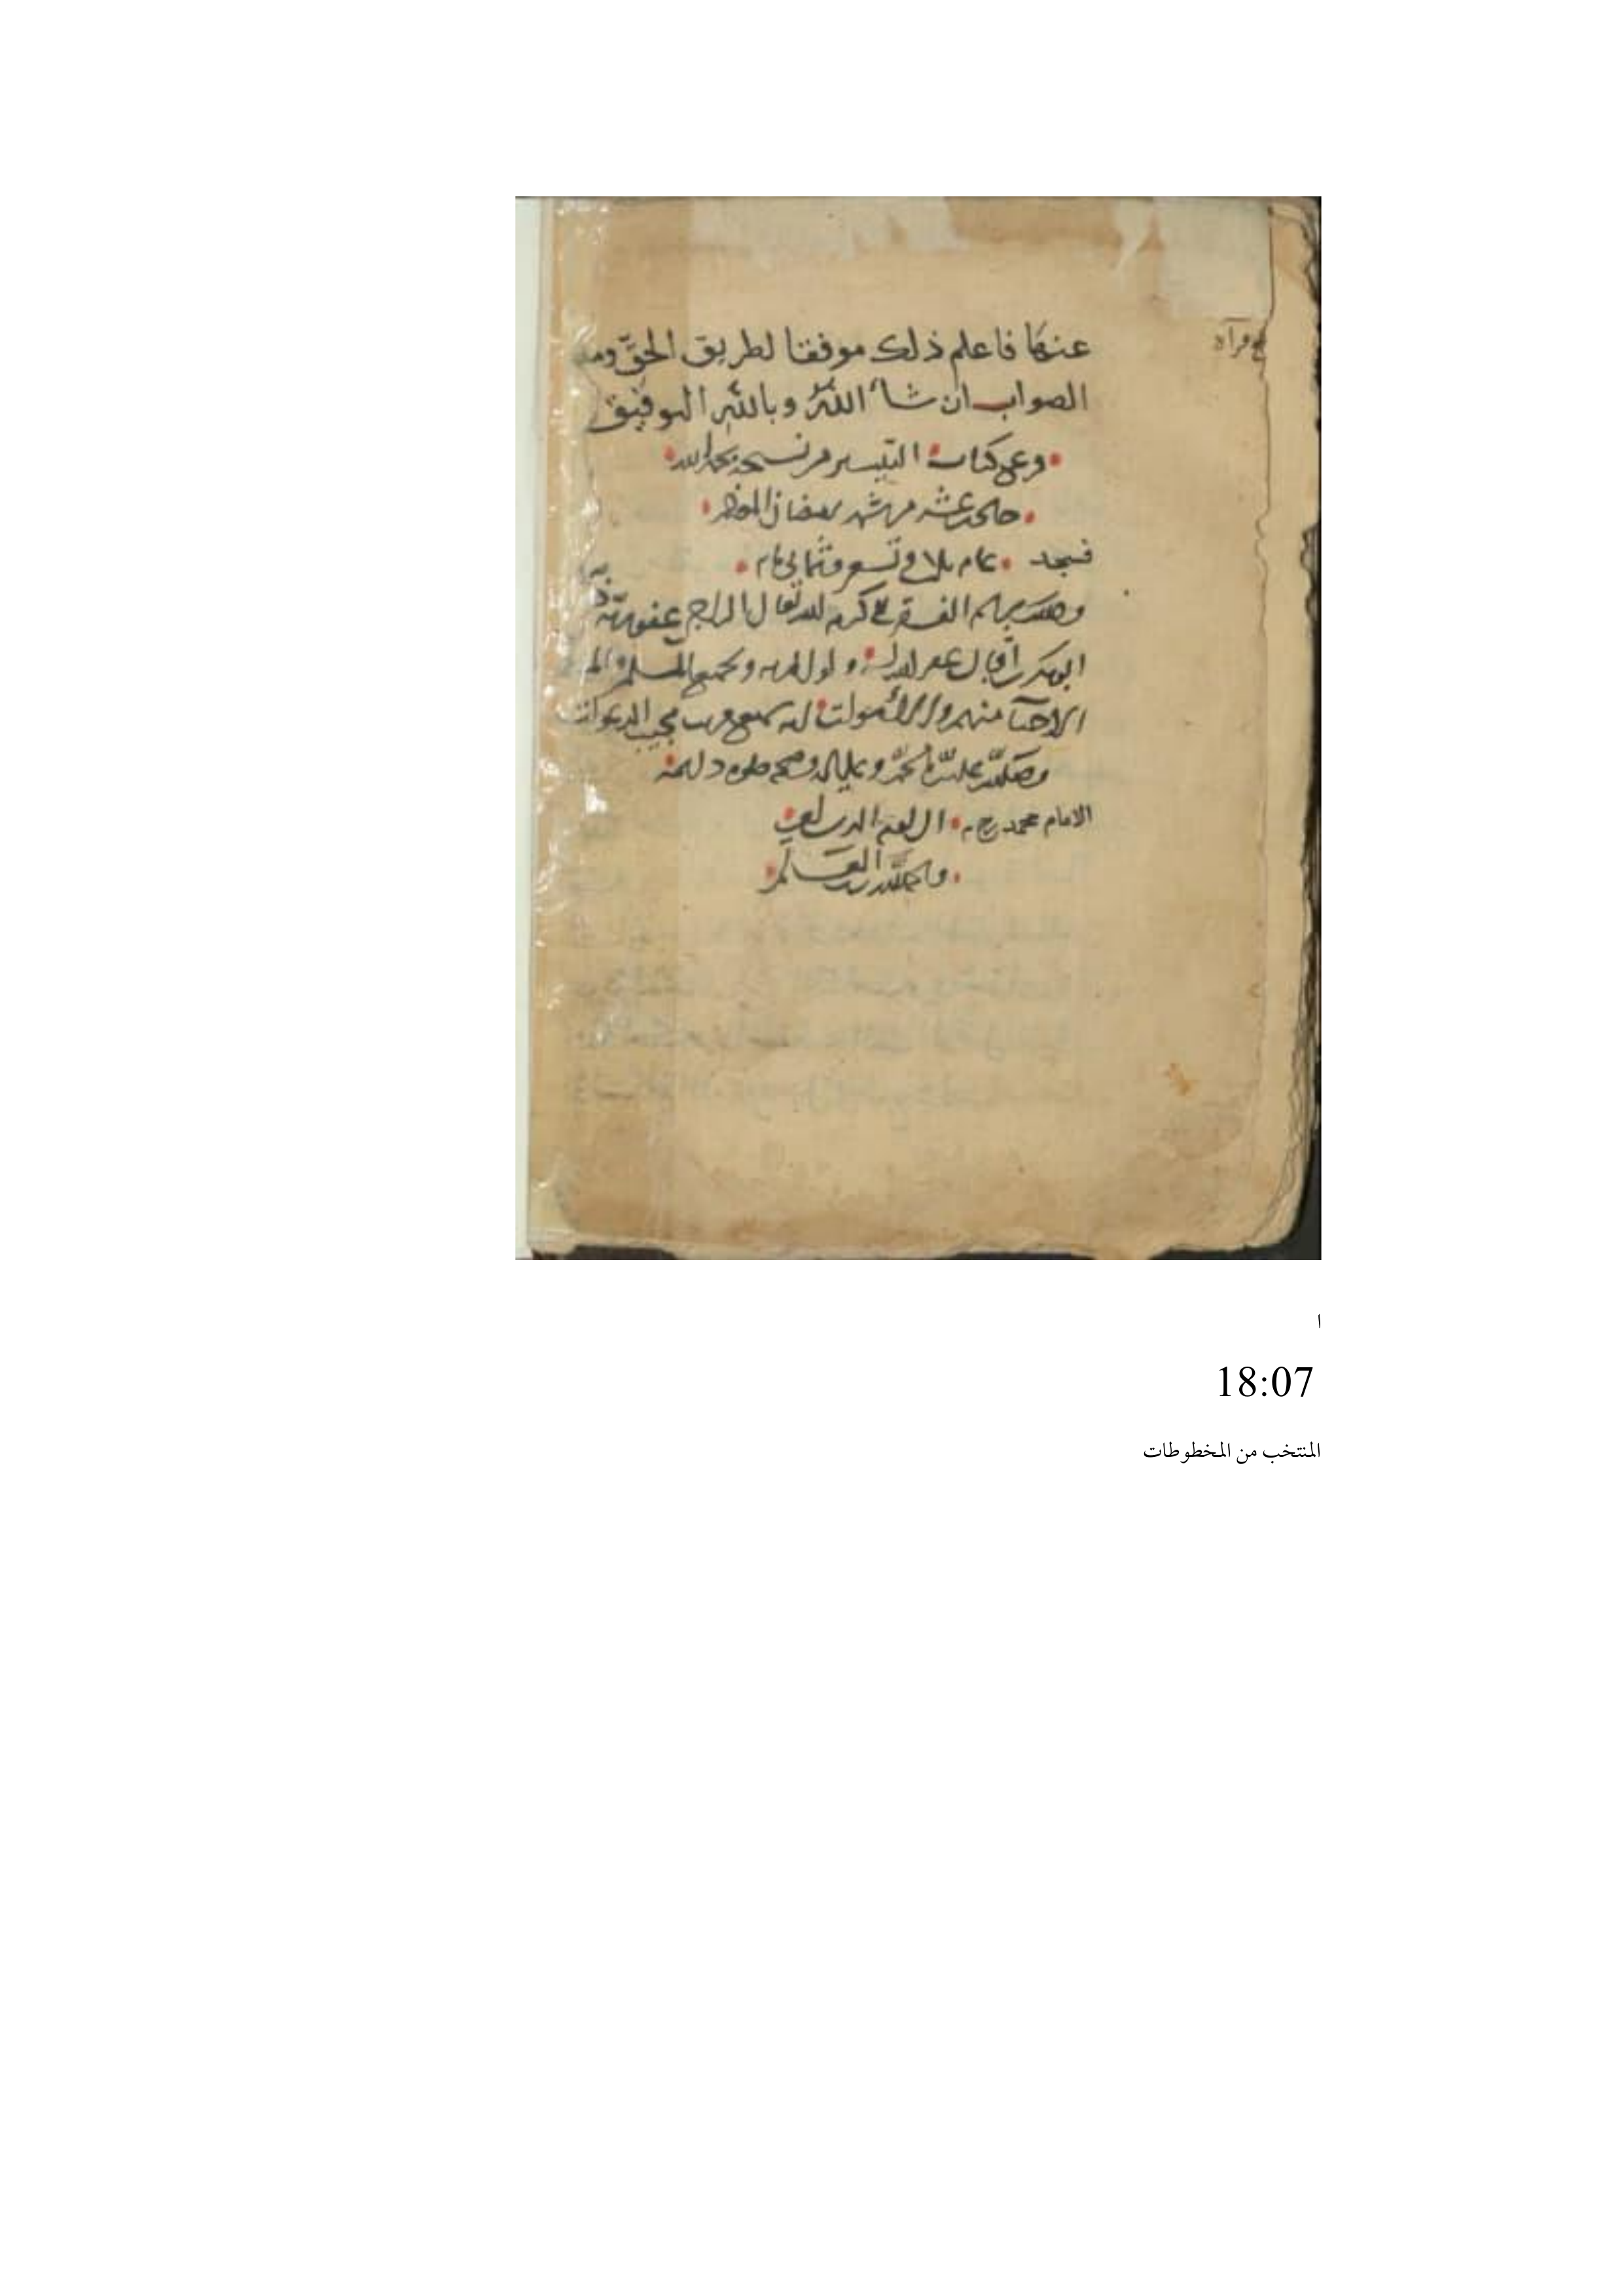 قرأه
عنها فاعلم ذلك موفقا لطريق الحق
الصواب ان شاء الله وبالله التوفيق
كتابة التيسير من نسخه بحمد الله
حادي عشر من شهر رمضان المعظم
عام وتسعين وثمانى مايه
الفقير الى كرم الله تعالى الراجى عفو
ابو بكر غفر الله له ولوالديه ولجميع المسلمين
الاحيا منهم والاموات انه سميع قريب مجيب الدعوات
وصلى الله على سيدنا محمد وعلى اله وصحبه
الامام محمد
الى يوم الدين
والحمد لله رب العالمين
ا
18:07
المنتخب من المخطوطات